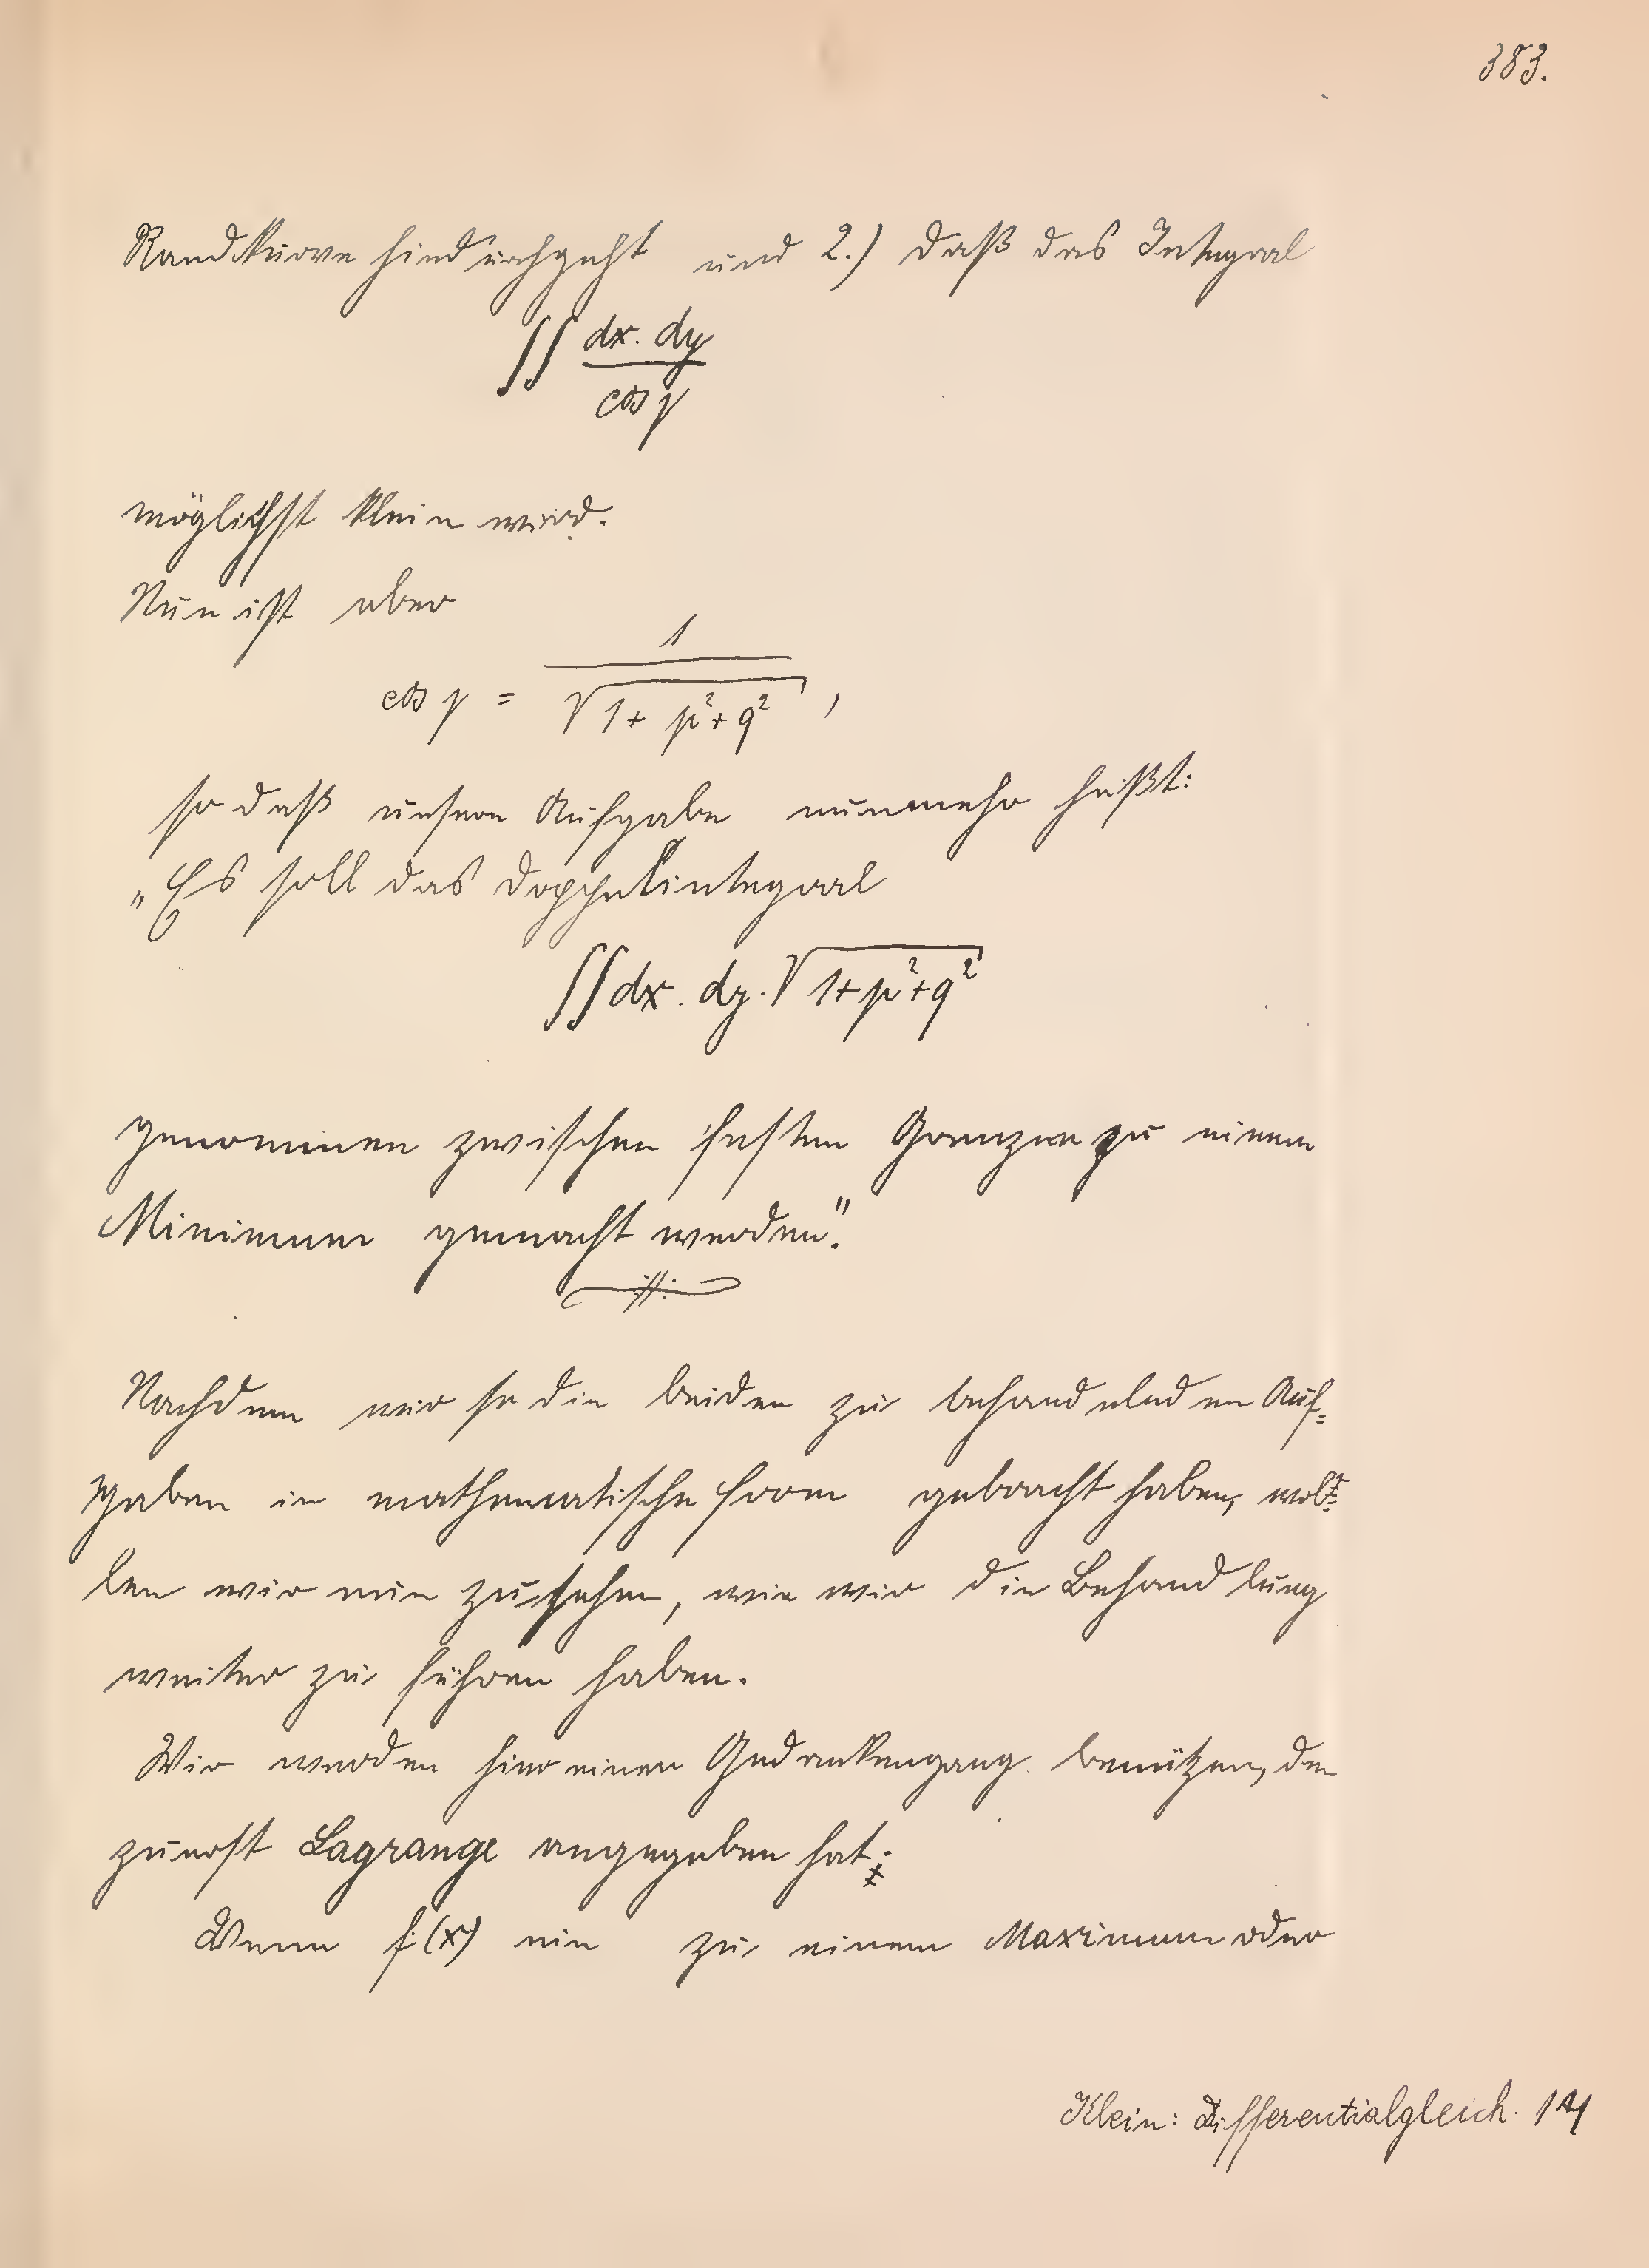 383.
Randkurve hindurchgeht und 2.) daß das Integral
∬ dx. dy / cos γ
möglichst klein wird.
Nun ist aber
cos γ = 1 / √(1 + p² + q²) ,
so daß unsere Aufgabe nunmehr heißt:
„Es soll das Doppelintegral
∬ dx. dy. √(1+p²+q²)
genommen zwischen festen Grenzen zu einem
Minimum gemacht werden."
Nachdem wir so die beiden zu behandelnden Auf=
gaben in mathematische Form gebracht haben, wol=
len wir nun zusehen, wie wir die Behandlung
weiter zu führen haben.
Wir werden hier einen Gedankengang benützen, den
zuerst Lagrange angegeben hat:
Wenn f(x) ein zu einem Maximum oder
Klein: Differentialgleich.